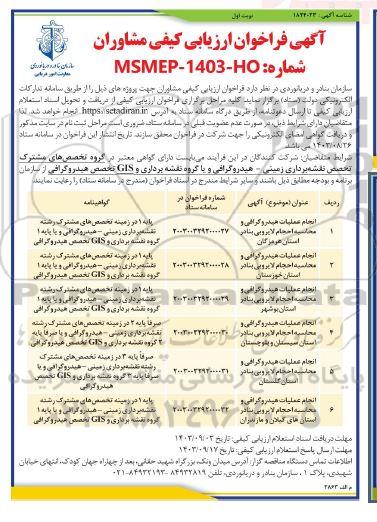 شناسه آگهی: ۱۸۴۴۰۳۳
نوبت اول
آگهی فراخوان ارزیابی کیفی مشاوران
شماره: MSMEP-1403-HO
سازمان بنادر و دریانوردی
معاونت امور دریایی
سازمان بنادر و دریانوردی در نظر دارد فراخوان ارزیابی کیفی مشاوران جهت پروژه های ذیل را از طریق سامانه تدارکات
الکترونیکی دولت (ستاد) برگزار نماید. کلیه مراحل برگزاری فراخوان ارزیابی کیفی از دریافت و تحویل اسناد استعلام
ارزیابی کیفی تا ارسال دعوتنامه، از طریق درگاه سامانه ستاد به آدرس https://setadiran.ir انجام خواهد شد. لذا
متقاضیان دارای شرایط ذیل، در صورت عدم عضویت قبلی در سامانه ستاد، ضروری است مراحل ثبت نام در سایت مذکور
و دریافت گواهی امضای الکترونیکی را جهت شرکت در فراخوان محقق سازند. تاریخ انتشار این فراخوان در سامانه ستاد
۱۴۰۳/۰۸/۲۶ می باشد.
شرایط متقاضیان: شرکت کنندگان در این فرآیند می‌بایست دارای گواهی معتبر در گروه تخصص‌های مشترک
تخصص نقشه‌برداری زمینی - هیدروگرافی و یا گروه نقشه برداری و GIS تخصص هیدروگرافی از سازمان
برنامه و بودجه مطابق ذیل باشند و سایر شرایط مندرج در اسناد فراخوان (مندرج در سامانه ستاد) را رعایت نمایند:
ردیف عنوان (موضوع) آگهی شماره فراخوان در سامانه ستاد گواهینامه
۱ انجام عملیات هیدروگرافی و محاسبه احجام لایروبی بنادر استان هرمزگان پایه ۱ در زمینه تخصص‌های مشترک رشته نقشه‌برداری زمینی - هیدروگرافی و یا پایه ۱ گروه نقشه برداری و GIS تخصص هیدروگرافی
۲ انجام عملیات هیدروگرافی و محاسبه احجام لایروبی بنادر استان خوزستان پایه ۱ در زمینه تخصص‌های مشترک رشته نقشه‌برداری زمینی - هیدروگرافی و یا پایه ۱ گروه نقشه برداری و GIS تخصص هیدروگرافی
۳ انجام عملیات هیدروگرافی و محاسبه احجام لایروبی بنادر استان بوشهر پایه ۱ در زمینه تخصص‌های مشترک رشته نقشه‌برداری زمینی - هیدروگرافی و یا پایه ۱ گروه نقشه برداری و GIS تخصص هیدروگرافی
۴ انجام عملیات هیدروگرافی و محاسبه احجام لایروبی بنادر استان سیستان و بلوچستان صرفاً پایه ۲ در زمینه تخصص‌های مشترک رشته نقشه‌برداری زمینی - هیدروگرافی و یا صرفاً پایه ۲ گروه نقشه برداری و GIS تخصص هیدروگرافی
۵ انجام عملیات هیدروگرافی و محاسبه احجام لایروبی بنادر استان گلستان صرفاً پایه ۳ در زمینه تخصص‌های مشترک رشته نقشه‌برداری زمینی - هیدروگرافی و یا صرفاً پایه ۳ گروه نقشه برداری و GIS تخصص هیدروگرافی
۶ انجام عملیات هیدروگرافی و محاسبه احجام لایروبی بنادر استان های گیلان و مازندران پایه ۱ در زمینه تخصص‌های مشترک رشته نقشه‌برداری زمینی - هیدروگرافی و یا پایه ۱ گروه نقشه برداری و GIS تخصص هیدروگرافی
مهلت دریافت اسناد استعلام ارزیابی کیفی: تاریخ ۱۴۰۳/۰۹/۰۳
مهلت ارسال پاسخ استعلام ارزیابی کیفی: تاریخ ۱۴۰۳/۰۹/۱۷
اطلاعات تماس دستگاه مناقصه گزار: آدرس میدان ونک، بزرگراه شهید حقانی، بعد از چهارراه جهان کودک، انتهای خیابان
شهیدی، پلاک ۱ ، سازمان بنادر و دریانوردی، تلفن ۸۴۹۳۲۸۱۹ -۸۴۹۳۲۱۹۳-۰۲۱
م الف ۲۸۶۳